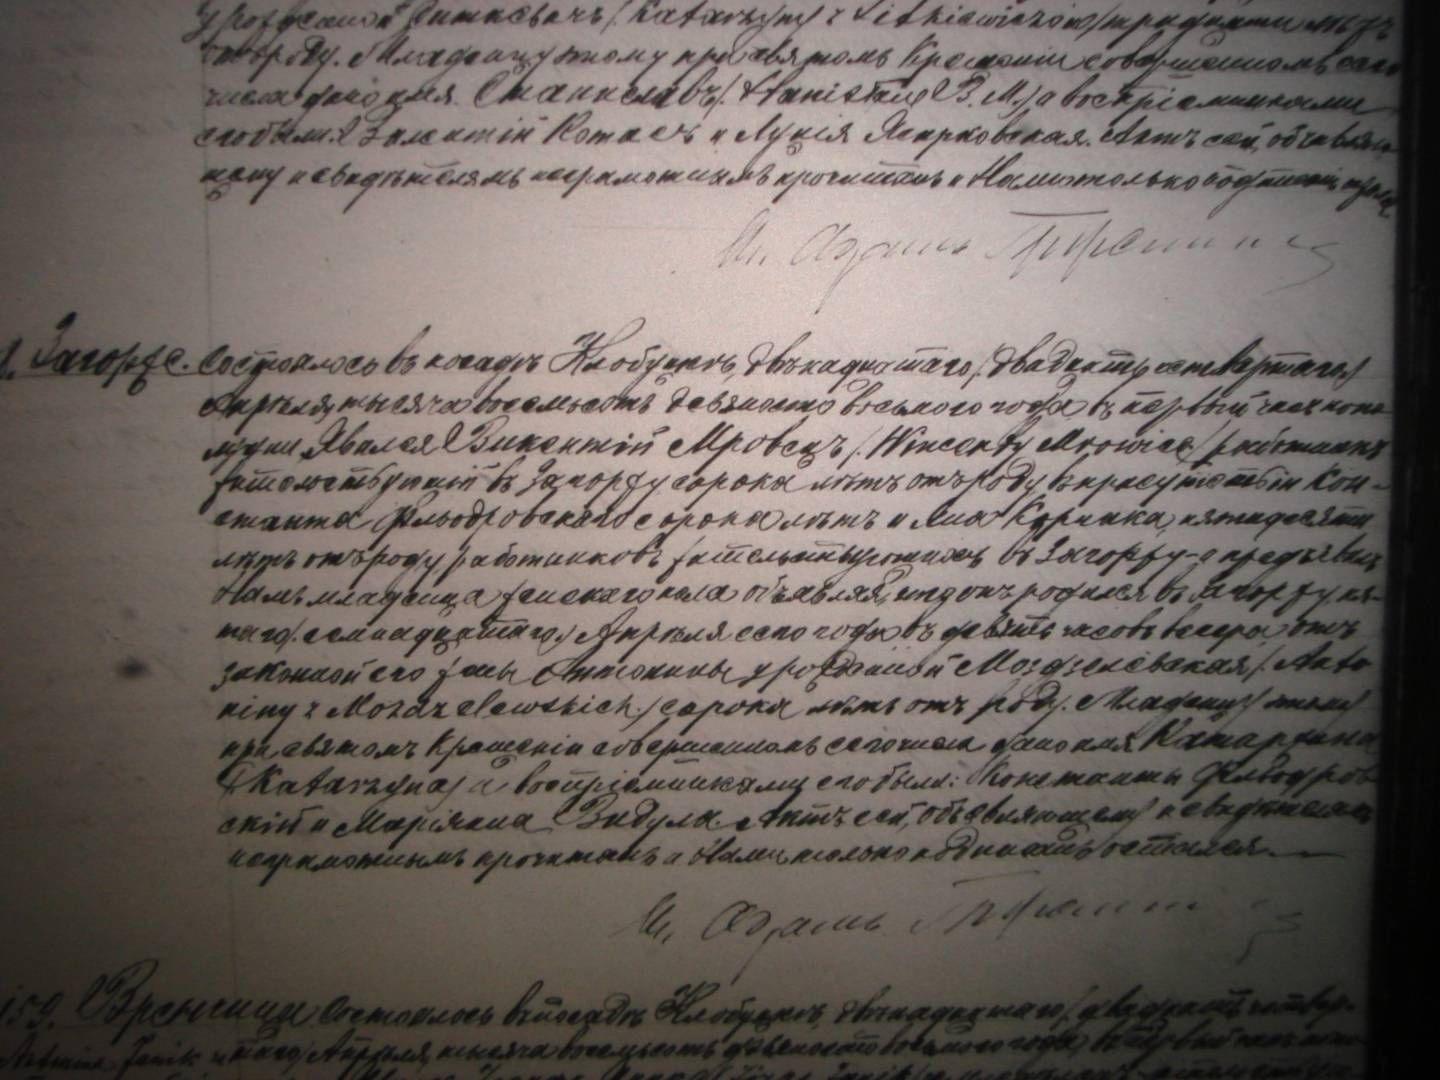 тридцати лѣтъ
отъ роду. Младенцу этому при святомъ Крещеніи совершенномъ сего
числа дано имя Станиславъ /Stanisław B. M./ а воспріемниками
его были: Валентій Котасъ и Луція Ясярковская. Актъ сей, объявляю-
щему и свидѣтелямъ неграмотнымъ прочитанъ и Нами только подписанъ
Адамъ
Загорже. Состоялось въ посадѣ Клобуцкѣ, двѣнадцатаго /двадцать четвертаго/
Апрѣля, тысяча восемьсотъ девяносто восьмого года въ первый часъ попо-
лудни. Явился Викентій Мровецъ /Wincenty Mrowiec/ работникъ
жительствующій въ Загоржу сорока лѣтъ отъ роду въ присутствіи Кон-
станта Фльодровскаго сорока лѣтъ и Яна Курпика, пятидесяти
лѣтъ отъ роду работниковъ жительствующихъ въ Загоржу и предъявилъ
Намъ младенца женскаго пола объявляя, что онъ родился въ Загоржу пя-
таго /семнадцатаго/ Апрѣля сего года въ девять часовъ вечера отъ
законной его жены Антонины урожденной Моздзелевская /Anto-
niny z Mozdzelewskich/ сорока лѣтъ отъ роду. Младенцу этому
при святомъ Крещеніи совершенномъ сего числа дано имя Катаржина
/Katarzyna/ а воспріемниками его были: Константы Фльодров-
скій и Маріянна Видула. Актъ сей, объявляющему и свидѣтелямъ
неграмотнымъ прочитанъ и Нами только подписанъ остался.
Адамъ
159. Вренчица Состоялось въ посадѣ Клобуцкѣ, двѣнадцатаго /двадцать четвер-
таго/ Апрѣля, тысяча восемьсотъ девяносто восьмого года, въ первый часъ